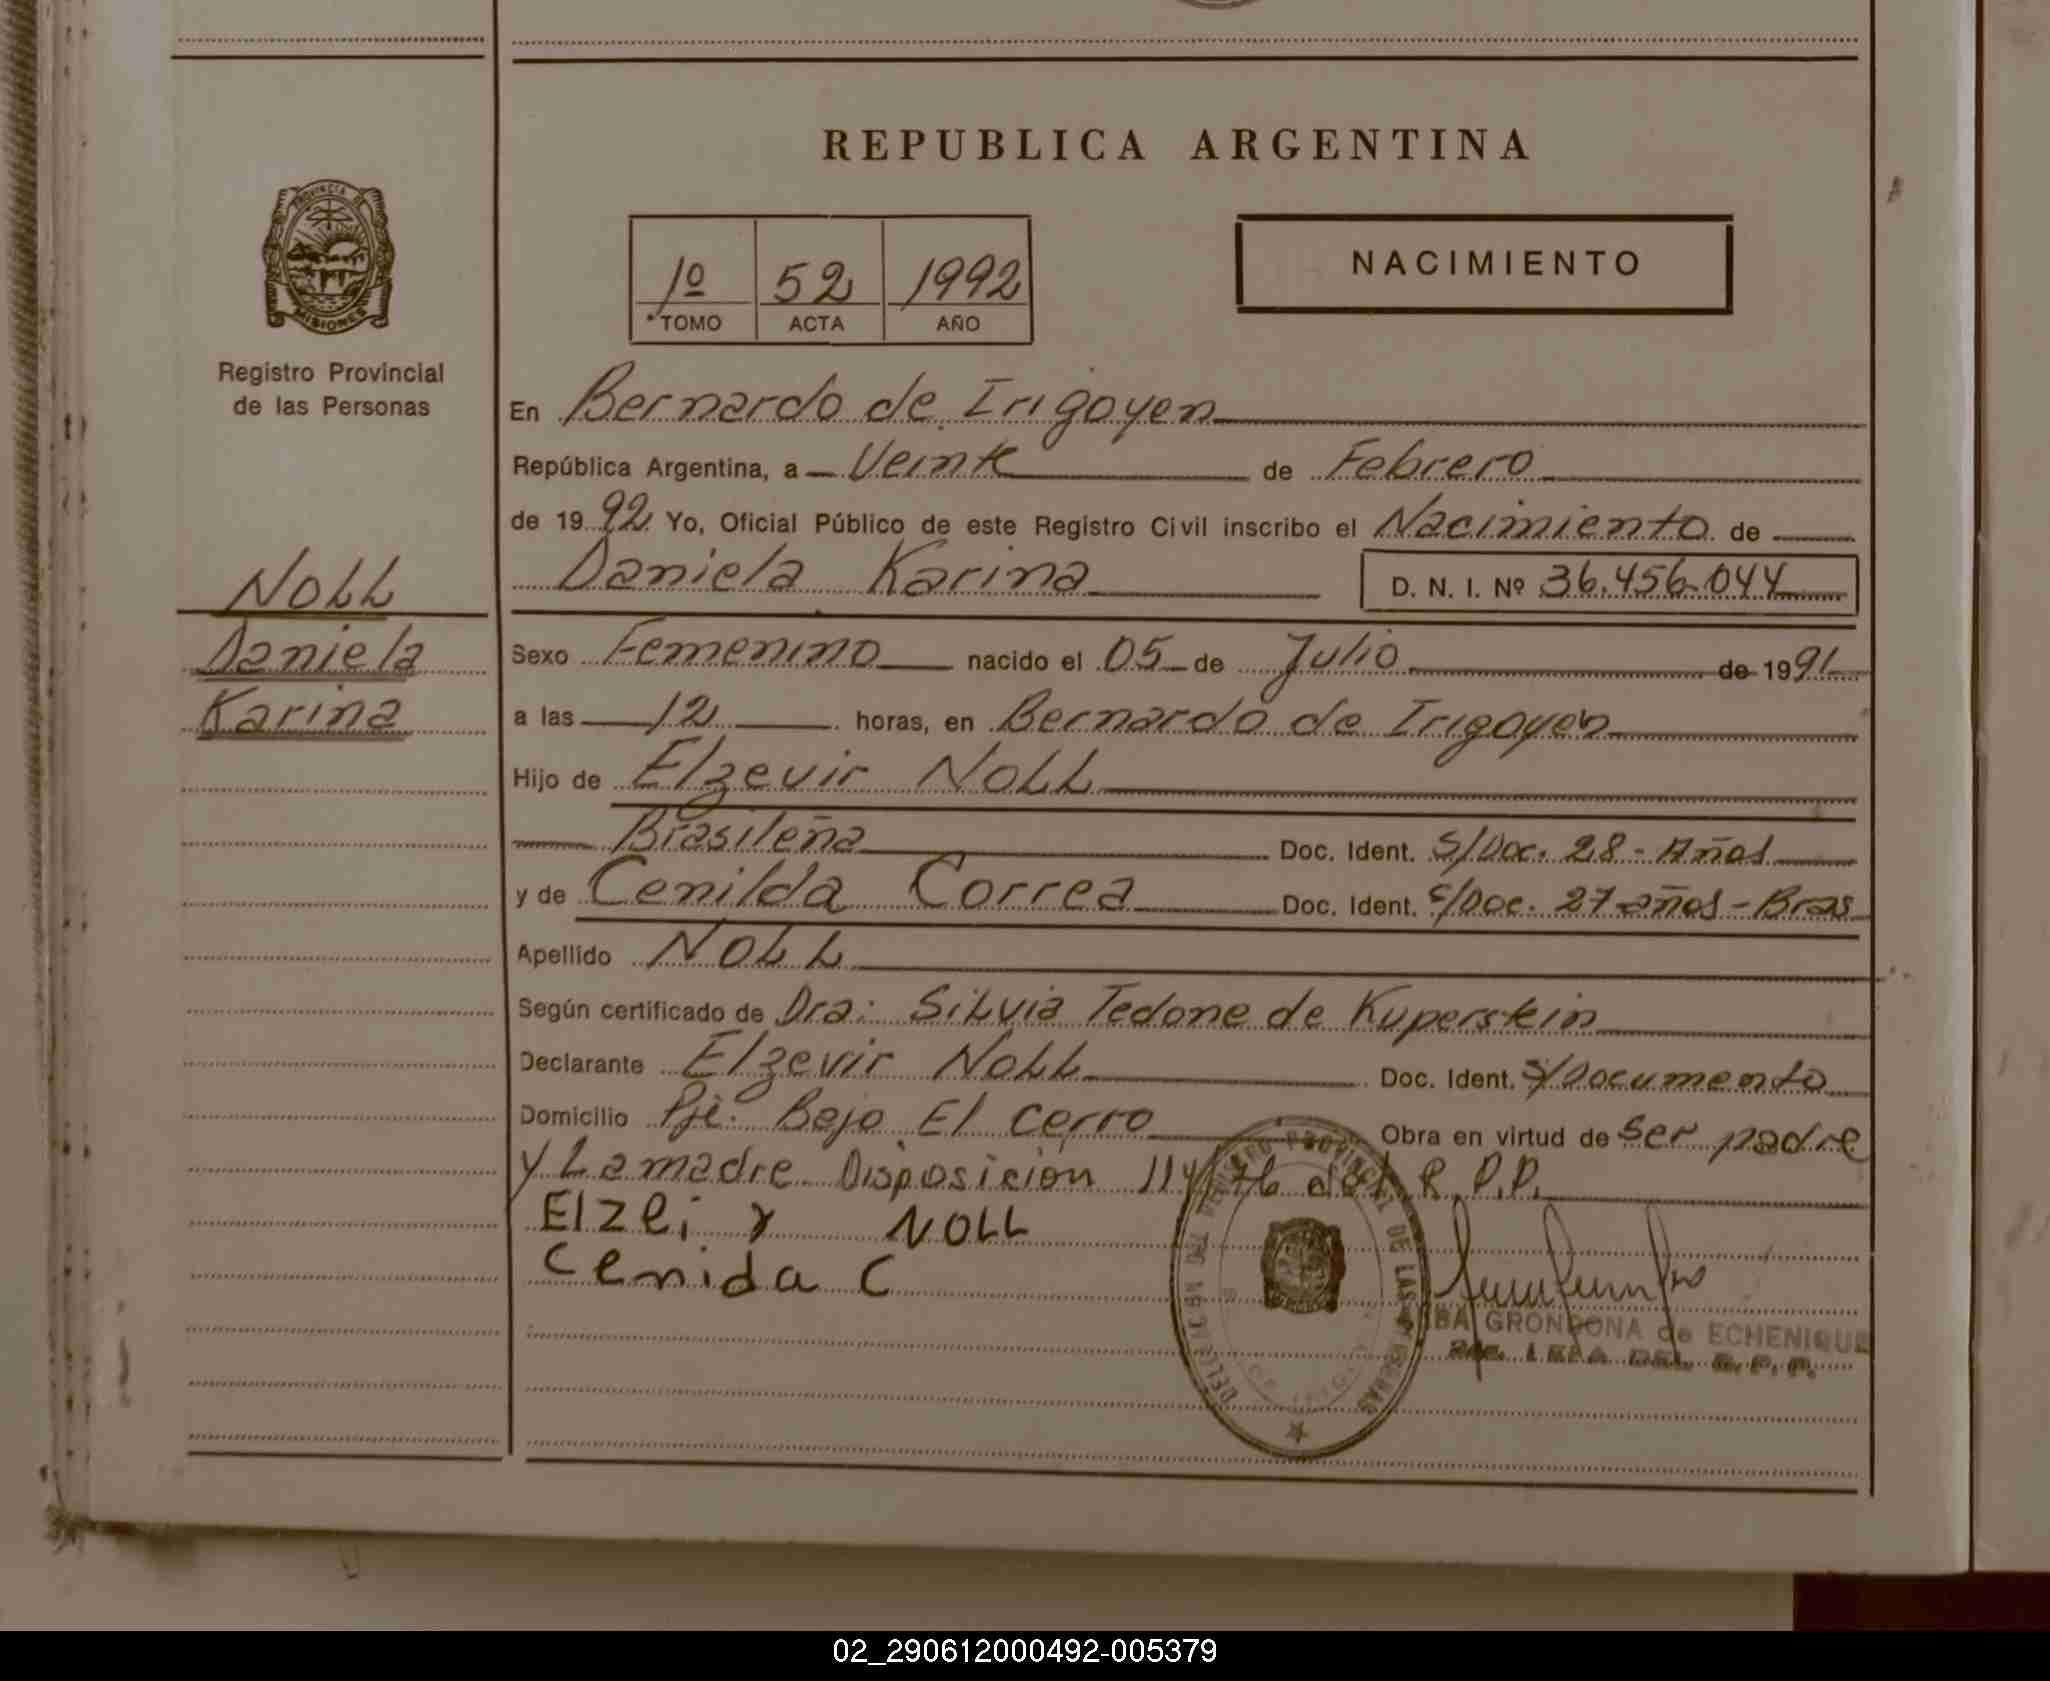 REPUBLICA ARGENTINA
PROVINCIA DE
MISIONES
Registro Provincial
de las Personas
1º 52 1992
TOMO ACTA AÑO
NACIMIENTO
En Bernardo de Irigoyen
República Argentina, a Veinte de Febrero
de 1992 Yo, Oficial Público de este Registro Civil inscribo el Nacimiento de
Daniela Karina D. N. I. Nº 36.456.044
NOLL
Daniela
Karina
Sexo Femenino nacido el 05 de Julio de 1991
a las 12 horas, en Bernardo de Irigoyen
Hijo de Elzevir NOLL
Brasileña Doc. Ident. S/Doc. 28 - Años
y de Cenilda Correa Doc. Ident. S/Doc. 27 años - Bras
Apellido NOLL
Según certificado de Dra: Silvia Tedone de Kuperstein
Declarante Elzevir NOLL Doc. Ident. S/Documento
Domicilio Pje. Bejo El Cerro Obra en virtud de ser padre
y La madre Disposicion 114/76 del R.P.P.
Elzeir NOLL
Cenida C
DELEGACION DEL REGISTRO PROVINCIAL DE LAS PERSONAS
GRONDONA de ECHENIQUE
DEL R.P.P.
02_290612000492-005379